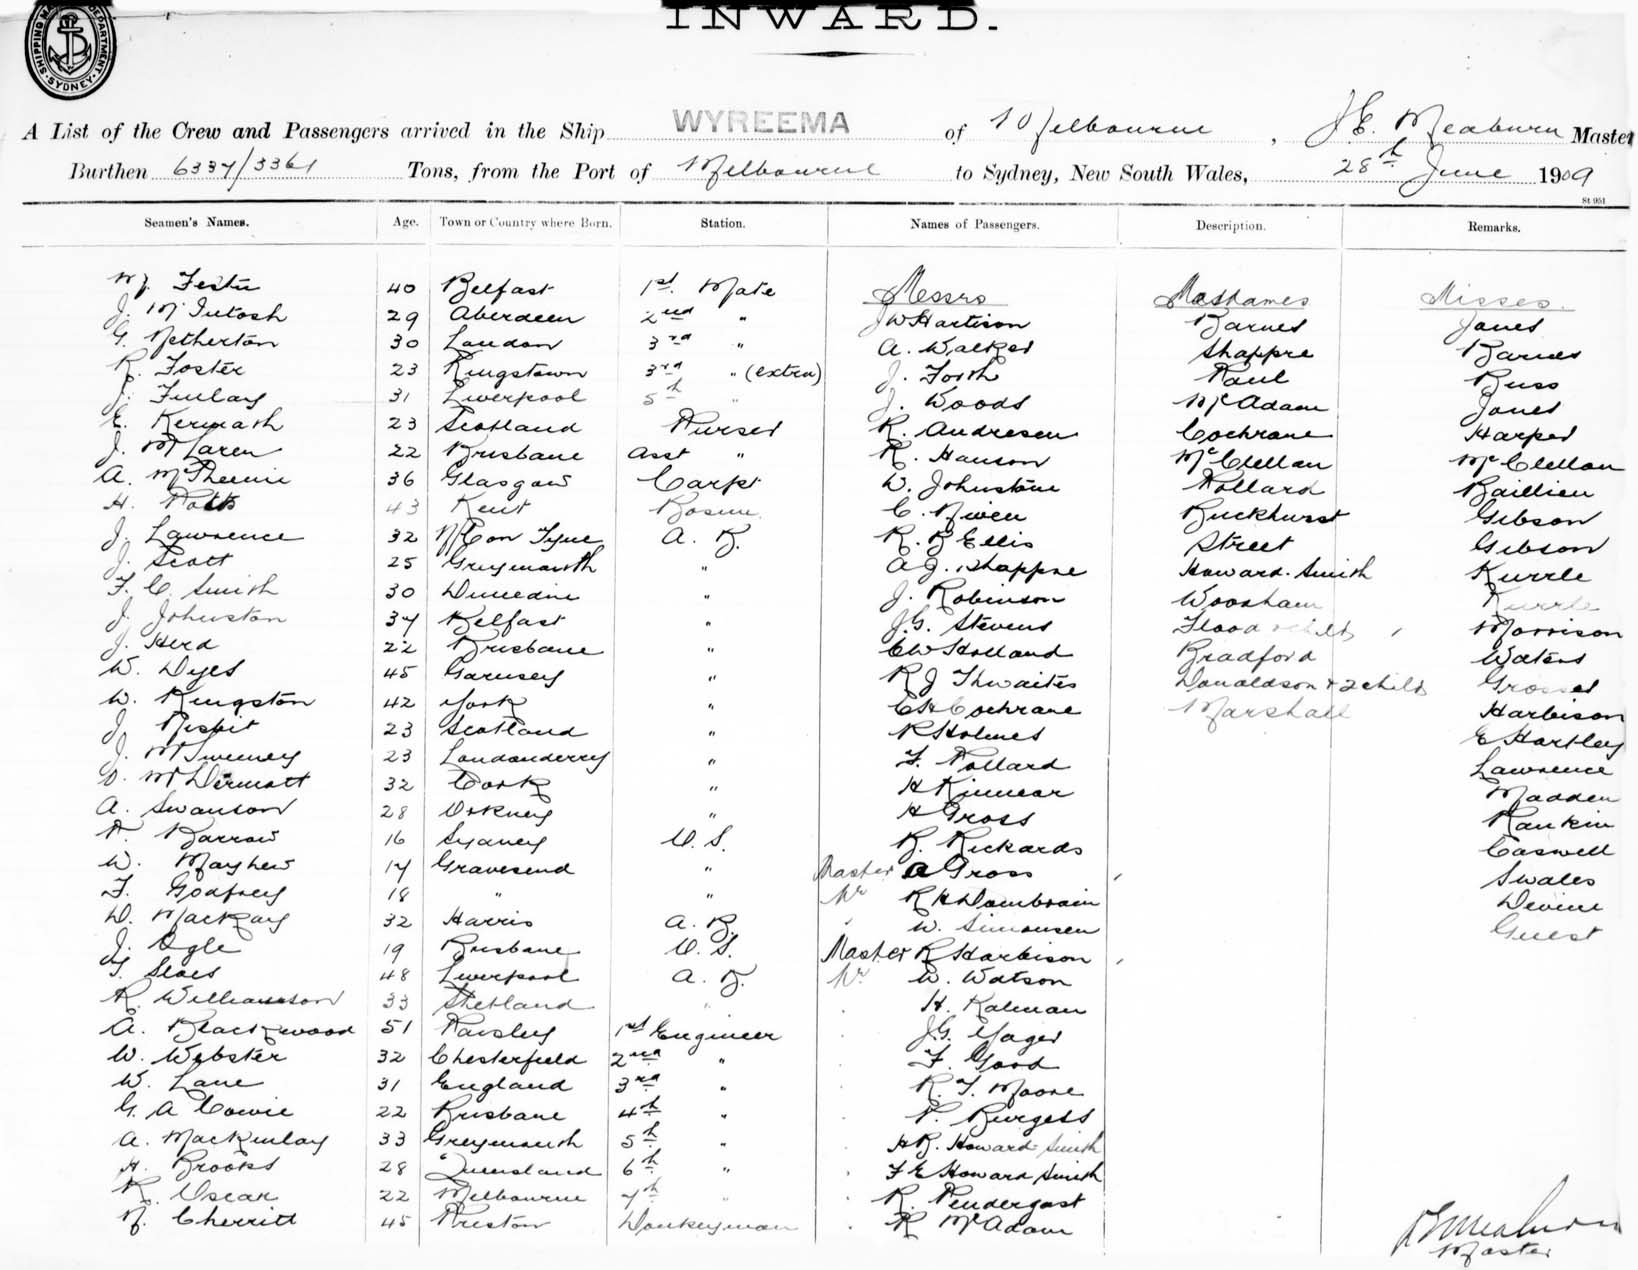 INWARD.
SHIPPING MASTER'S DEPARTMENT SYDNEY
A List of the Crew and Passengers arrived in the Ship WYREEMA of Melbourne, J E. Meaburn Master
Burthen 6337/3361 Tons, from the Port of Melbourne to Sydney, New South Wales, 28th June 1909
St 951
Seamen's Names. Age. Town or Country where Born. Station. Names of Passengers. Description. Remarks.
40 Belfast 1st. Mate Messrs Mesdames Misses.
J. McIntosh 29 Aberdeen 2nd " Barnes Jones
G. Netherton 30 London 3rd " A. Walker Shappre Barnes
R. Foster 23 Kingstown 3rd " (extra) J. Forth Paul Buss
J. Finlay 31 Liverpool 5th " J. Woods McAdam Jones
E. Kermath 23 Scotland Purser R. Andresen Cochrane Harper
J. McLaren 22 Brisbane Asst " R. Hanson McClellan McClellan
A. McPhennie 36 Glasgow Carpt W. Johnstone Pollard Baillieu
H. Potts 43 Kent Bosun C. Niven Buckhurst Gibson
J. Lawrence 32 N/C on Tyne A. B. R. B Ellis Street Gibson
J. Scott 25 Greymouth " A J. Shappre Howard-Smith Kurrle
F. C. Smith 30 Dunedin " J. Robinson Woosham Kurrle
J. Johnston 37 Belfast " J. G. Stevens Flood & child Morrison
J. Herd 22 Brisbane " C W Holland Bradford Waters
W. Dyes 45 Garnsey " R J Thwaites Donaldson & 2 childs Grosser
W. Kingston 42 York " C H Cochrane Marshall Harbison
J. Nisbit 23 Scotland " R Holmes E Hartley
J. McSweeney 23 Londonderry " F. Pollard Lawrence
D. McDermott 32 Cork " H Kinnear Madden
A. Swanson 28 Orkney " H Gross Rankin
P. Barrow 16 Sydney O. S. R. Rickards Caswell
W. Mayhew 17 Gravesend " Master A Gross Swales
F. Godfrey 18 " " Mr R H Dombrain Devine
D. MacKay 32 Harris A. B. " W. Simonsen Guest
J. Ogle 19 Brisbane O. S. Master R Harbison
48 Liverpool A. B. Mr. W. Watson
R. Williamson 33 Shetland " H. Kalman
A. Blackwood 51 Paisley 1st Engineer J. G. Yager
W. Webster 32 Chesterfield 2nd " F. Good
W. Lane 31 England 3rd " R. T. Moore
G. A Cowie 22 Brisbane 4th " P. Burgess
A. MacKinlay 33 Greymouth 5th " H B. Howard-Smith
H. Brooks 28 Queensland 6th " F E Howard Smith
R. Oscar 22 Melbourne 7th " R. Pendergast
N. Cherritt 45 Preston Donkeyman R McAdam
Master